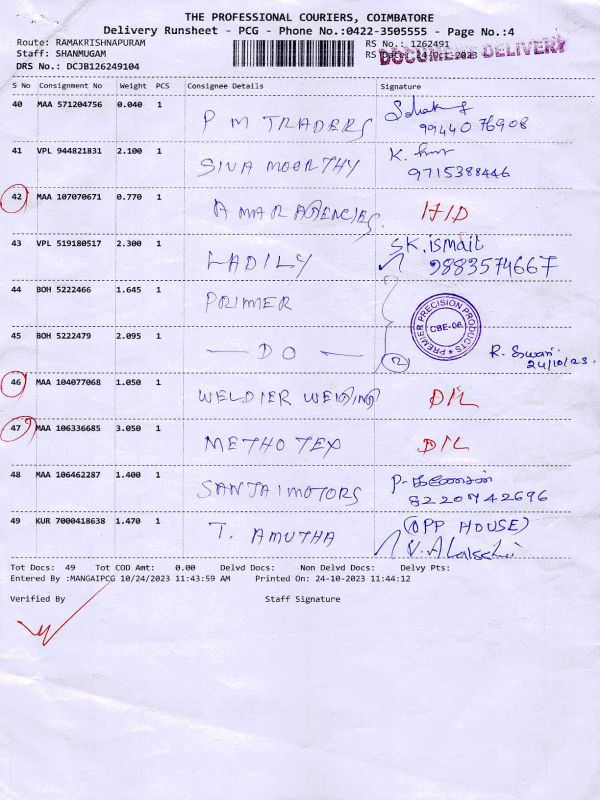 THE PROFESSIONAL COURIERS, COIMBATORE
Delivery Runsheet - PCG - Phone No.:0422-3505555 - Page No.:4
Route: RAMAKRISHNAPURAM
Staff: SHANMUGAM
DRS No.: DCJB126249104
RS No.: 1262491
RS Date: 24-Oct-2023
DOCUMENT DELIVERY
S No Consignment No Weight PCS Consignee Details Signature
40 MAA 571204756 0.040 1 P M TRADERS
9944076908
41 VPL 944821831 2.100 1 SIVA MOORTHY K.
9715388446
42 MAA 107070671 0.770 1 AMAR AGENCIES
43 VPL 519180517 2.300 1 LADILY SK. ismail
9883574667
44 BOH 5222466 1.645 1 PRIMER
PREMIER PRECISION PRODUCTS
CBE-06
45 BOH 5222479 2.095 1 — DO — 2 R. Eswari
24/10/23.
46 MAA 104077068 1.050 1 WELDIER WEIGING D/L
47 MAA 106336685 3.050 1 METHO TEX D/L
48 MAA 106462287 1.400 1 SANJAI MOTORS P-கணேசன்
8220742696
49 KUR 7000418638 1.470 1 T. AMUTHA (OPP HOUSE)
Tot Docs: 49 Tot COD Amt: 0.00 Delvd Docs: Non Delvd Docs: Delvy Pts:
Entered By :MANGAIPCG 10/24/2023 11:43:59 AM Printed On: 24-10-2023 11:44:12
Verified By Staff Signature